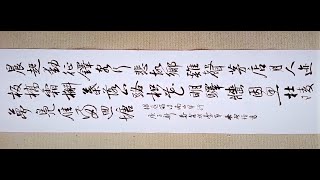 晨起動征鐸客行悲故鄉雞聲茅店月人迹
板橋霜槲葉落山路枳花明驛牆因思杜陵
夢鳧雁滿迴塘